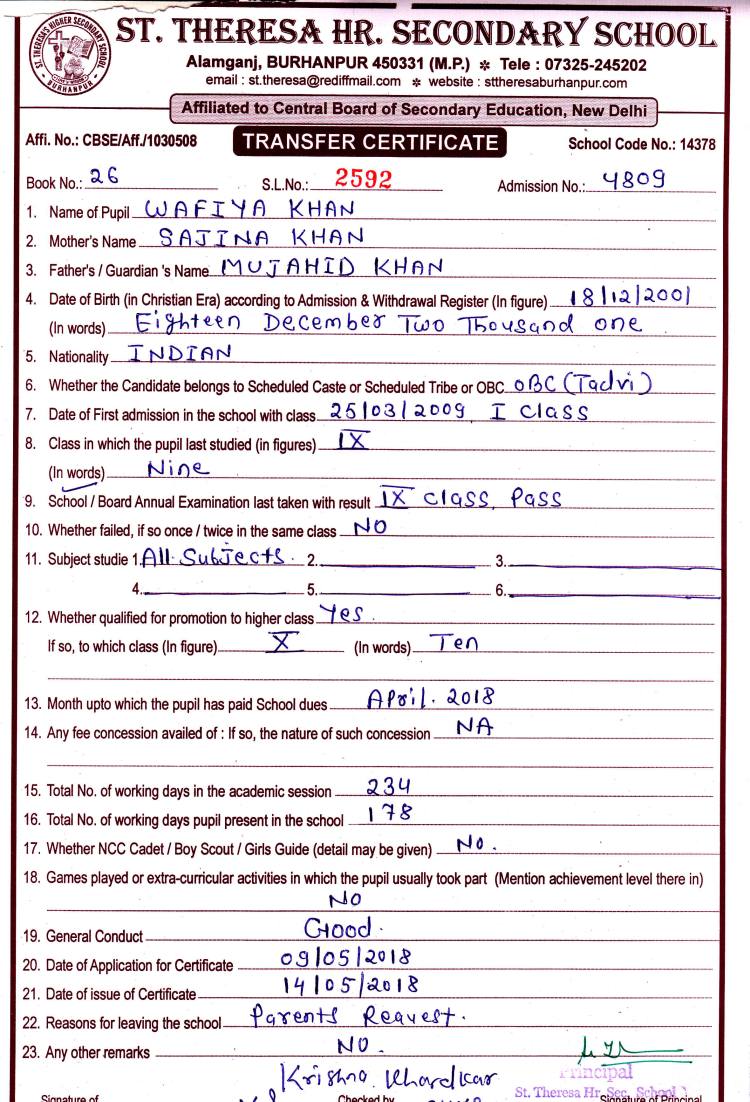 ST. THERESA'S HIGHER SECONDARY SCHOOL
BURHANPUR
ST. THERESA HR. SECONDARY SCHOOL
Alamganj, BURHANPUR 450331 (M.P.) ✻ Tele : 07325-245202
email : st.theresa@rediffmail.com ✻ website : sttheresaburhanpur.com
Affiliated to Central Board of Secondary Education, New Delhi
Affi. No.: CBSE/Aff./1030508 TRANSFER CERTIFICATE School Code No.: 14378
Book No.: 26 S.L.No.: 2592 Admission No.: 4809
1. Name of Pupil WAFIYA KHAN
2. Mother's Name SAJINA KHAN
3. Father's / Guardian 's Name MUJAHID KHAN
4. Date of Birth (in Christian Era) according to Admission & Withdrawal Register (In figure) 18/12/2001
(In words) Eighteen December Two Thousand one
5. Nationality INDIAN
6. Whether the Candidate belongs to Scheduled Caste or Scheduled Tribe or OBC OBC (Tadvi)
7. Date of First admission in the school with class 25/03/2009, I class
8. Class in which the pupil last studied (in figures) IX
(In words) Nine
9. School / Board Annual Examination last taken with result IX class, Pass
10. Whether failed, if so once / twice in the same class NO
11. Subject studie 1. All Subjects. 2. 3.
4. 5. 6.
12. Whether qualified for promotion to higher class Yes.
If so, to which class (In figure) X (In words) Ten
13. Month upto which the pupil has paid School dues April. 2018
14. Any fee concession availed of : If so, the nature of such concession NA
15. Total No. of working days in the academic session 234
16. Total No. of working days pupil present in the school 178
17. Whether NCC Cadet / Boy Scout / Girls Guide (detail may be given) No.
18. Games played or extra-curricular activities in which the pupil usually took part (Mention achievement level there in)
NO
19. General Conduct Good.
20. Date of Application for Certificate 09/05/2018
21. Date of issue of Certificate 14/05/2018
22. Reasons for leaving the school Parents Reauest.
23. Any other remarks NO.
Krishna. Khardkar
Principal
St. Theresa Hr. Sec. School
Signature of Checked by Signature of Principal